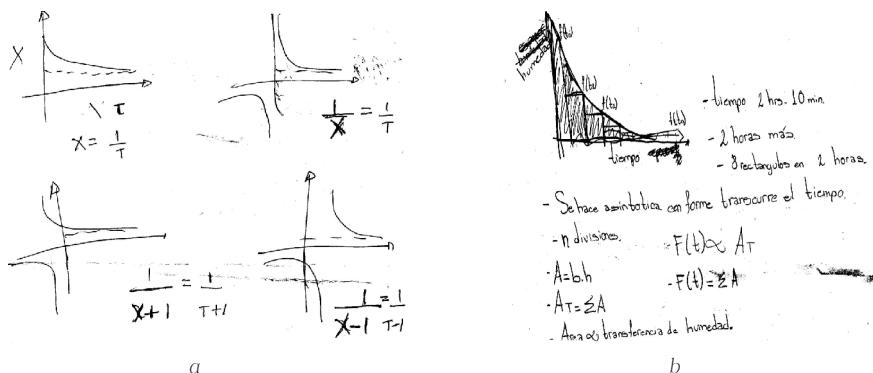 X
τ
x = 1/T
1/X = 1/T
1/X+1 = 1/T+1
1/X-1 = 1/T-1
a
humedad
f(t₀)
f(t₂)
f(t₃)
f(tₙ)
tiempo
- tiempo 2 hrs. 10 min.
- 2 horas más.
- 8 rectangulos en 2 horas.
- Se hace assintotica con forme transcurre el tiempo.
- n divisiones.
- F(t) ∝ AT
- A=b.h
- F(t) = ΣA
- AT = ΣA
- Area ∝ transferencia de humedad.
b